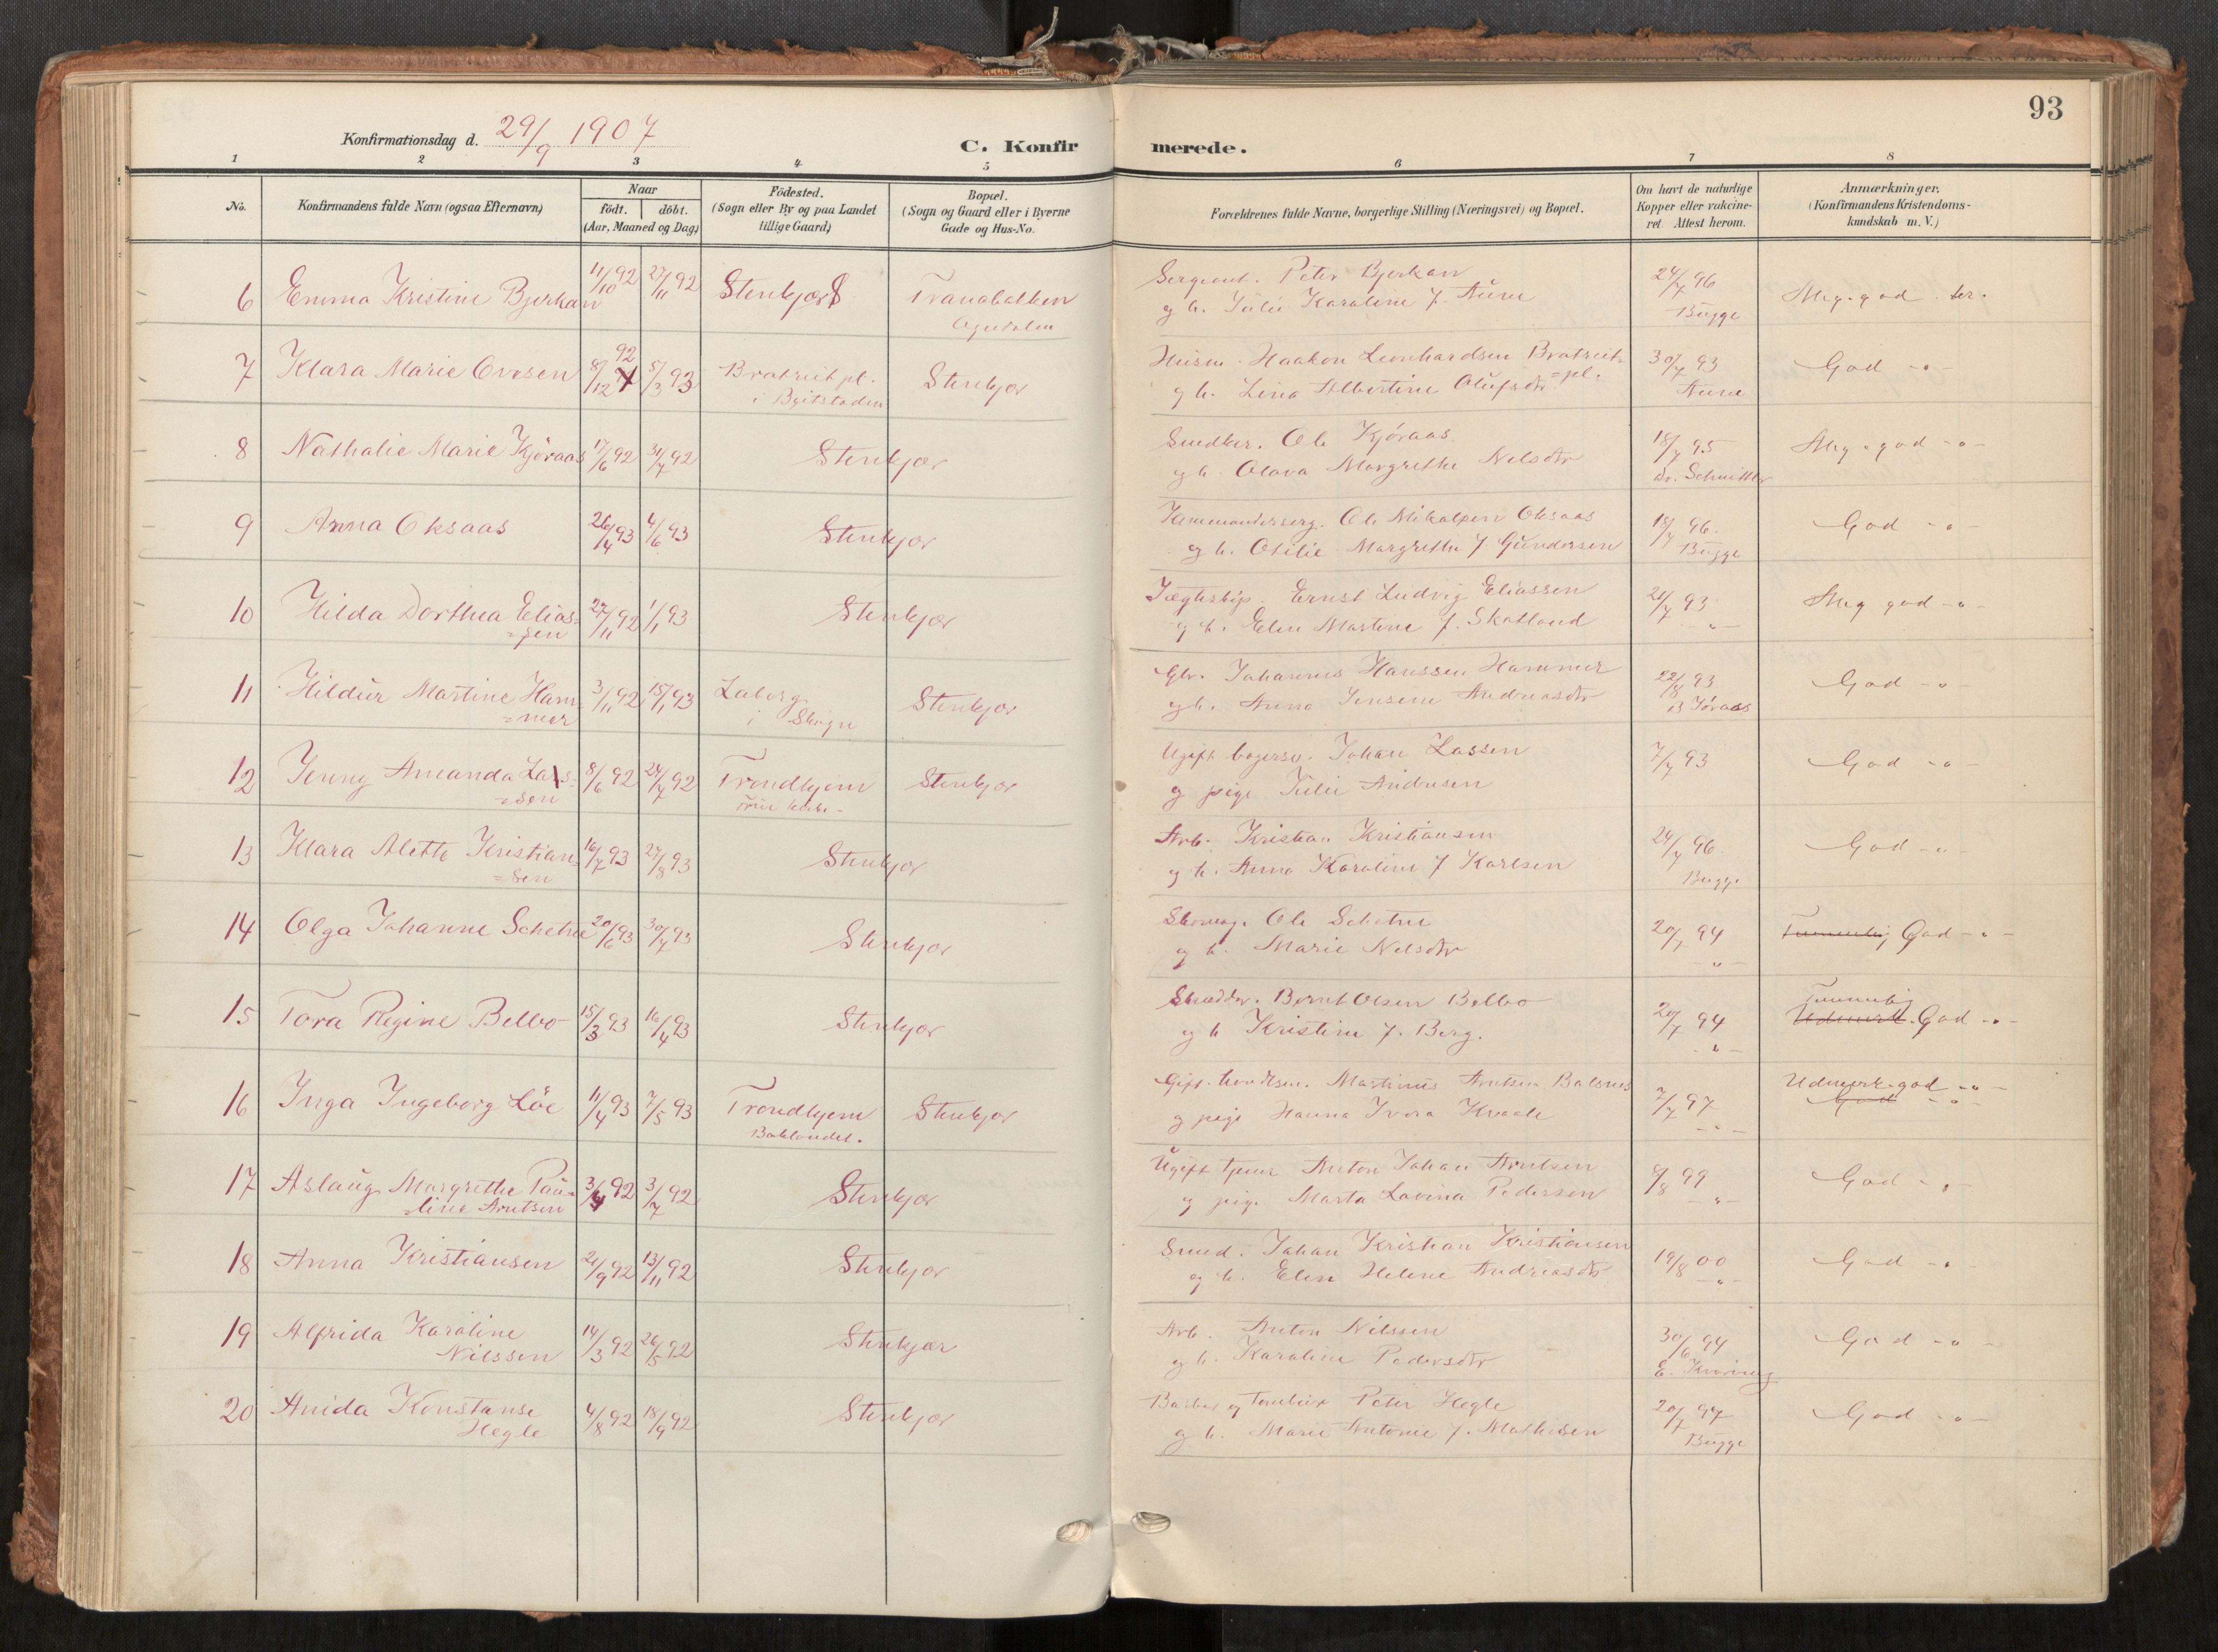 93
Konfirmationsdag d. 29/9 1907
C. Konfirmerede.
1 2 3 4 5 6 7 8
No.
Konfirmandens fulde Navn (ogsaa Efternavn)
Naar
födt. döbt.
(Aar, Maaned og Dag)
Födested.
(Sogn eller By og paa Landet
tillige Gaard)
Bopæl.
(Sogn og Gaard eller i Byerne
Gade og Hus-No.
Forældrenes fulde Navne, borgerlige Stilling (Næringsvei) og Bopæl.
Om havt de naturlige
Kopper eller vakcine-
ret. Attest herom.
Anmærkninger.
(Konfirmandens Kristendoms-
kundskab m. V.)
6 Emma Kristine Bjerkan 11/10 92 27/11 92 Stenkjær Tranabakken
Sergeant. Peter Bjerkan
g h. Julie Karoline f. Aune
24/7 96
Bugge
Meg. god
7 Klara Marie Ovesen 8/12 92 5/3 93 Bratreit pl.
i Beitstaden
Stenkjær
Husm. Haakon Leonhardsen Bratreit
=pl.
g h. Lina Albertine Olufsdtr
30/7 93
Aune
God -"-
8 Nathalie Marie Kjøraas 17/6 92 31/7 92 Stenkjær
Snedker. Ole Kjøraas
g h. Olava Margrethe Nelsdtr
18/7 95
Dr. Schnitler
Meg. god -"-
9 Anna Oksaas 26/4 93 4/6 93 Stenkjær
Kommanderserg. Ole Mikalsen Oksaas
g h. Otilie Margrethe f. Gundersen
18/7 96.
Bugge
God -"-
10 Hilda Dorthea Elias=
=sen
27/11 92 1/1 93 Stenkjær
Jægteskip. Ernst Ludvig Eliassen
g h. Elen Martine f. Skatland
21/7 93
-"-
Meg god -"-
11 Hildur Martine Ham=
=mer
3/11 92 15/1 93 Laborg
i Skogn
Stenkjær
Gbr. Johannes Hanssen Hammer
g h. Anna Jensine Andreasdtr
22/8 93
God -"-
12 Jenny Amanda Las=
=sen
8/6 92 24/7 92 Trondhjem
Stenkjær
Ugift bagersv. Johan Lassen
g pige Julie Andresen
7/7 93
God -"-
13 Klara Alette Kristian=
=sen
16/7 93 27/8 93 Stenkjær
Arb. Kristian Kristiansen
g h. Anna Karoline f Karlsen
24/7 96.
Bugge
God -"-
14 Olga Johanne Schetne 20/6 93 30/7 93 Stenkjær
Skomag. Ole Schetne
g h. Marie Nelsdtr
20/7 94
-"-
Temmelig God -"-
15 Tora Regine Belbo 15/3 93 16/4 93 Stenkjær
Skrædder. Bernt Olsen Belbo
g h Kristine f. Berg.
20/7 94
-"-
Temmelig
Udmerk. God -"-
16 Inga Ingeborg Löe 11/4 93 7/5 93 Trondhjem
Baklandet.
Stenkjær
Gift. handlsm. Martinus Arntsen Balsnes
g pige Hanna Ivara Kvaale
7/7 97
-"-
Udmerk. god -"-
God -"-
17 Aslaug Margrethe Pau=
=line Arntsen
3/4 92 3/7 92 Stenkjær
Ugift tjener Anton Johan Arntsen
g pige Marta Lovina Pedersen
8/8 99
-"-
God -"-
18 Anna Kristiansen 21/9 92 13/11 92 Stenkjær
Smed. Johan Kristian Kristiansen
g h. Elen Helene Andreasdtr
19/8 00
-"-
God -"-
19 Alfrida Karoline
Nilssen
14/3 92 26/5 92 Stenkjær
Arb. Anton Nilssen
g h. Karoline Pedersdtr
30/6 94
God -"-
20 Anida Konstanse
Hegle
4/8 92 18/9 92 Stenkjær
Barber og Peter Hegle
g h. Marie Antonie f. Mathisen
20/7 97
Bugge
God -"-